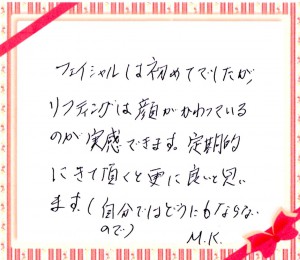 フェイシャルは初めてでしたが、
リフティングは顔がかわっている
のが実感できます。定期的
にきて頂くと更に良いと思い
ます。(自分ではどうにもならない
ので)
M.K.